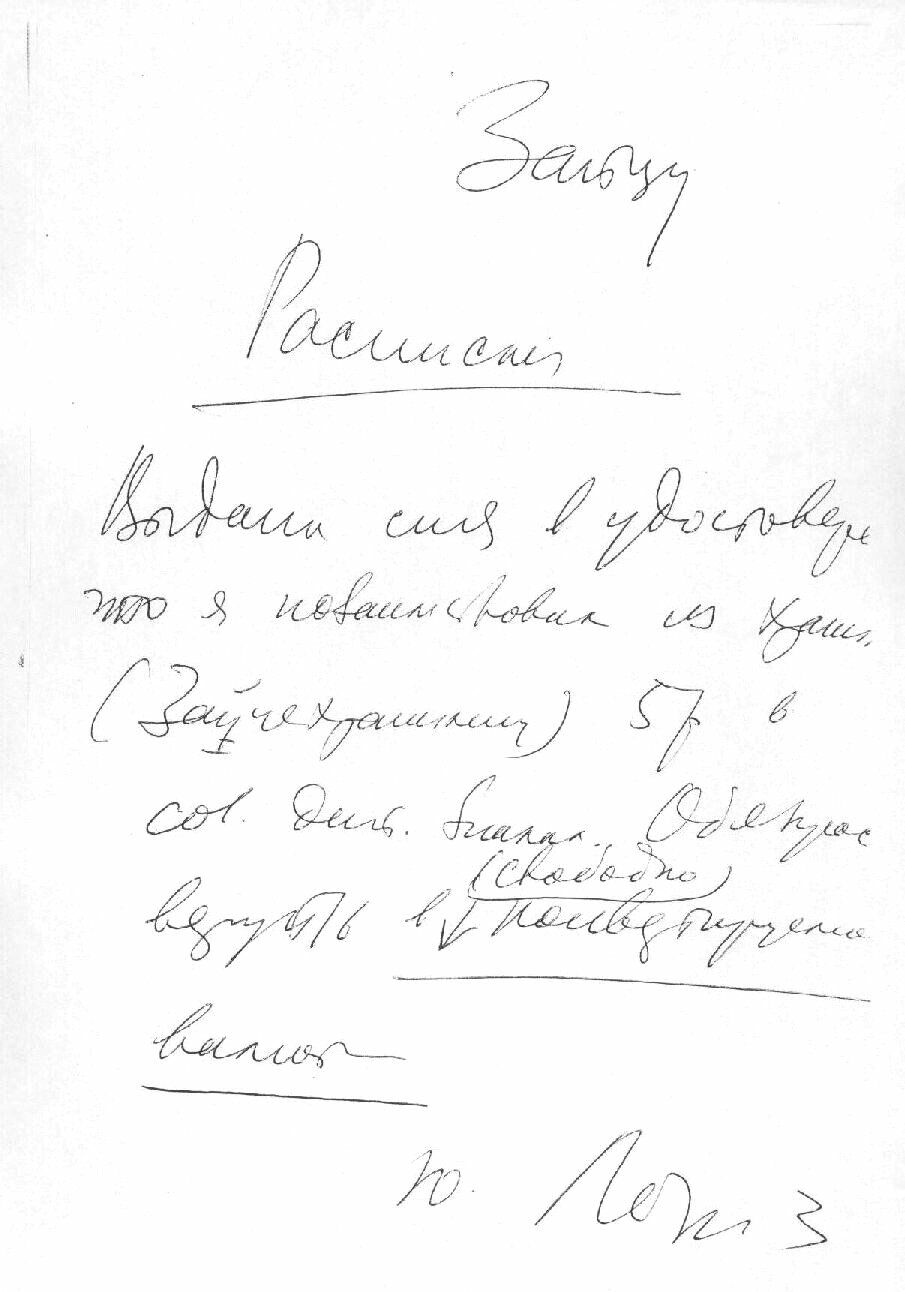 Зайцу
Расписка
Выдана сия в удостовере
что я позаимствовал из хран.
(Зайчехранилищ) 5 р в
сов. ден. знаках. Обязуюс
вернуть в
(свободно)
конвертируемо
валюте
Ю. Лотм